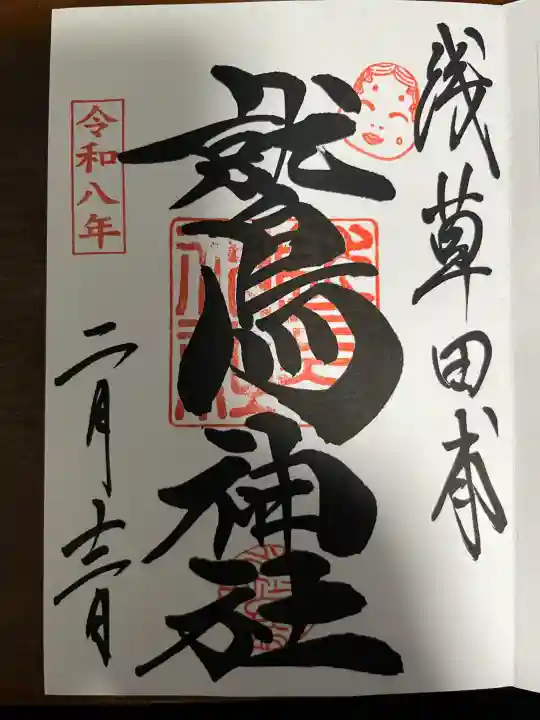 浅草田甫
鷲神社
令和八年
二月十二日